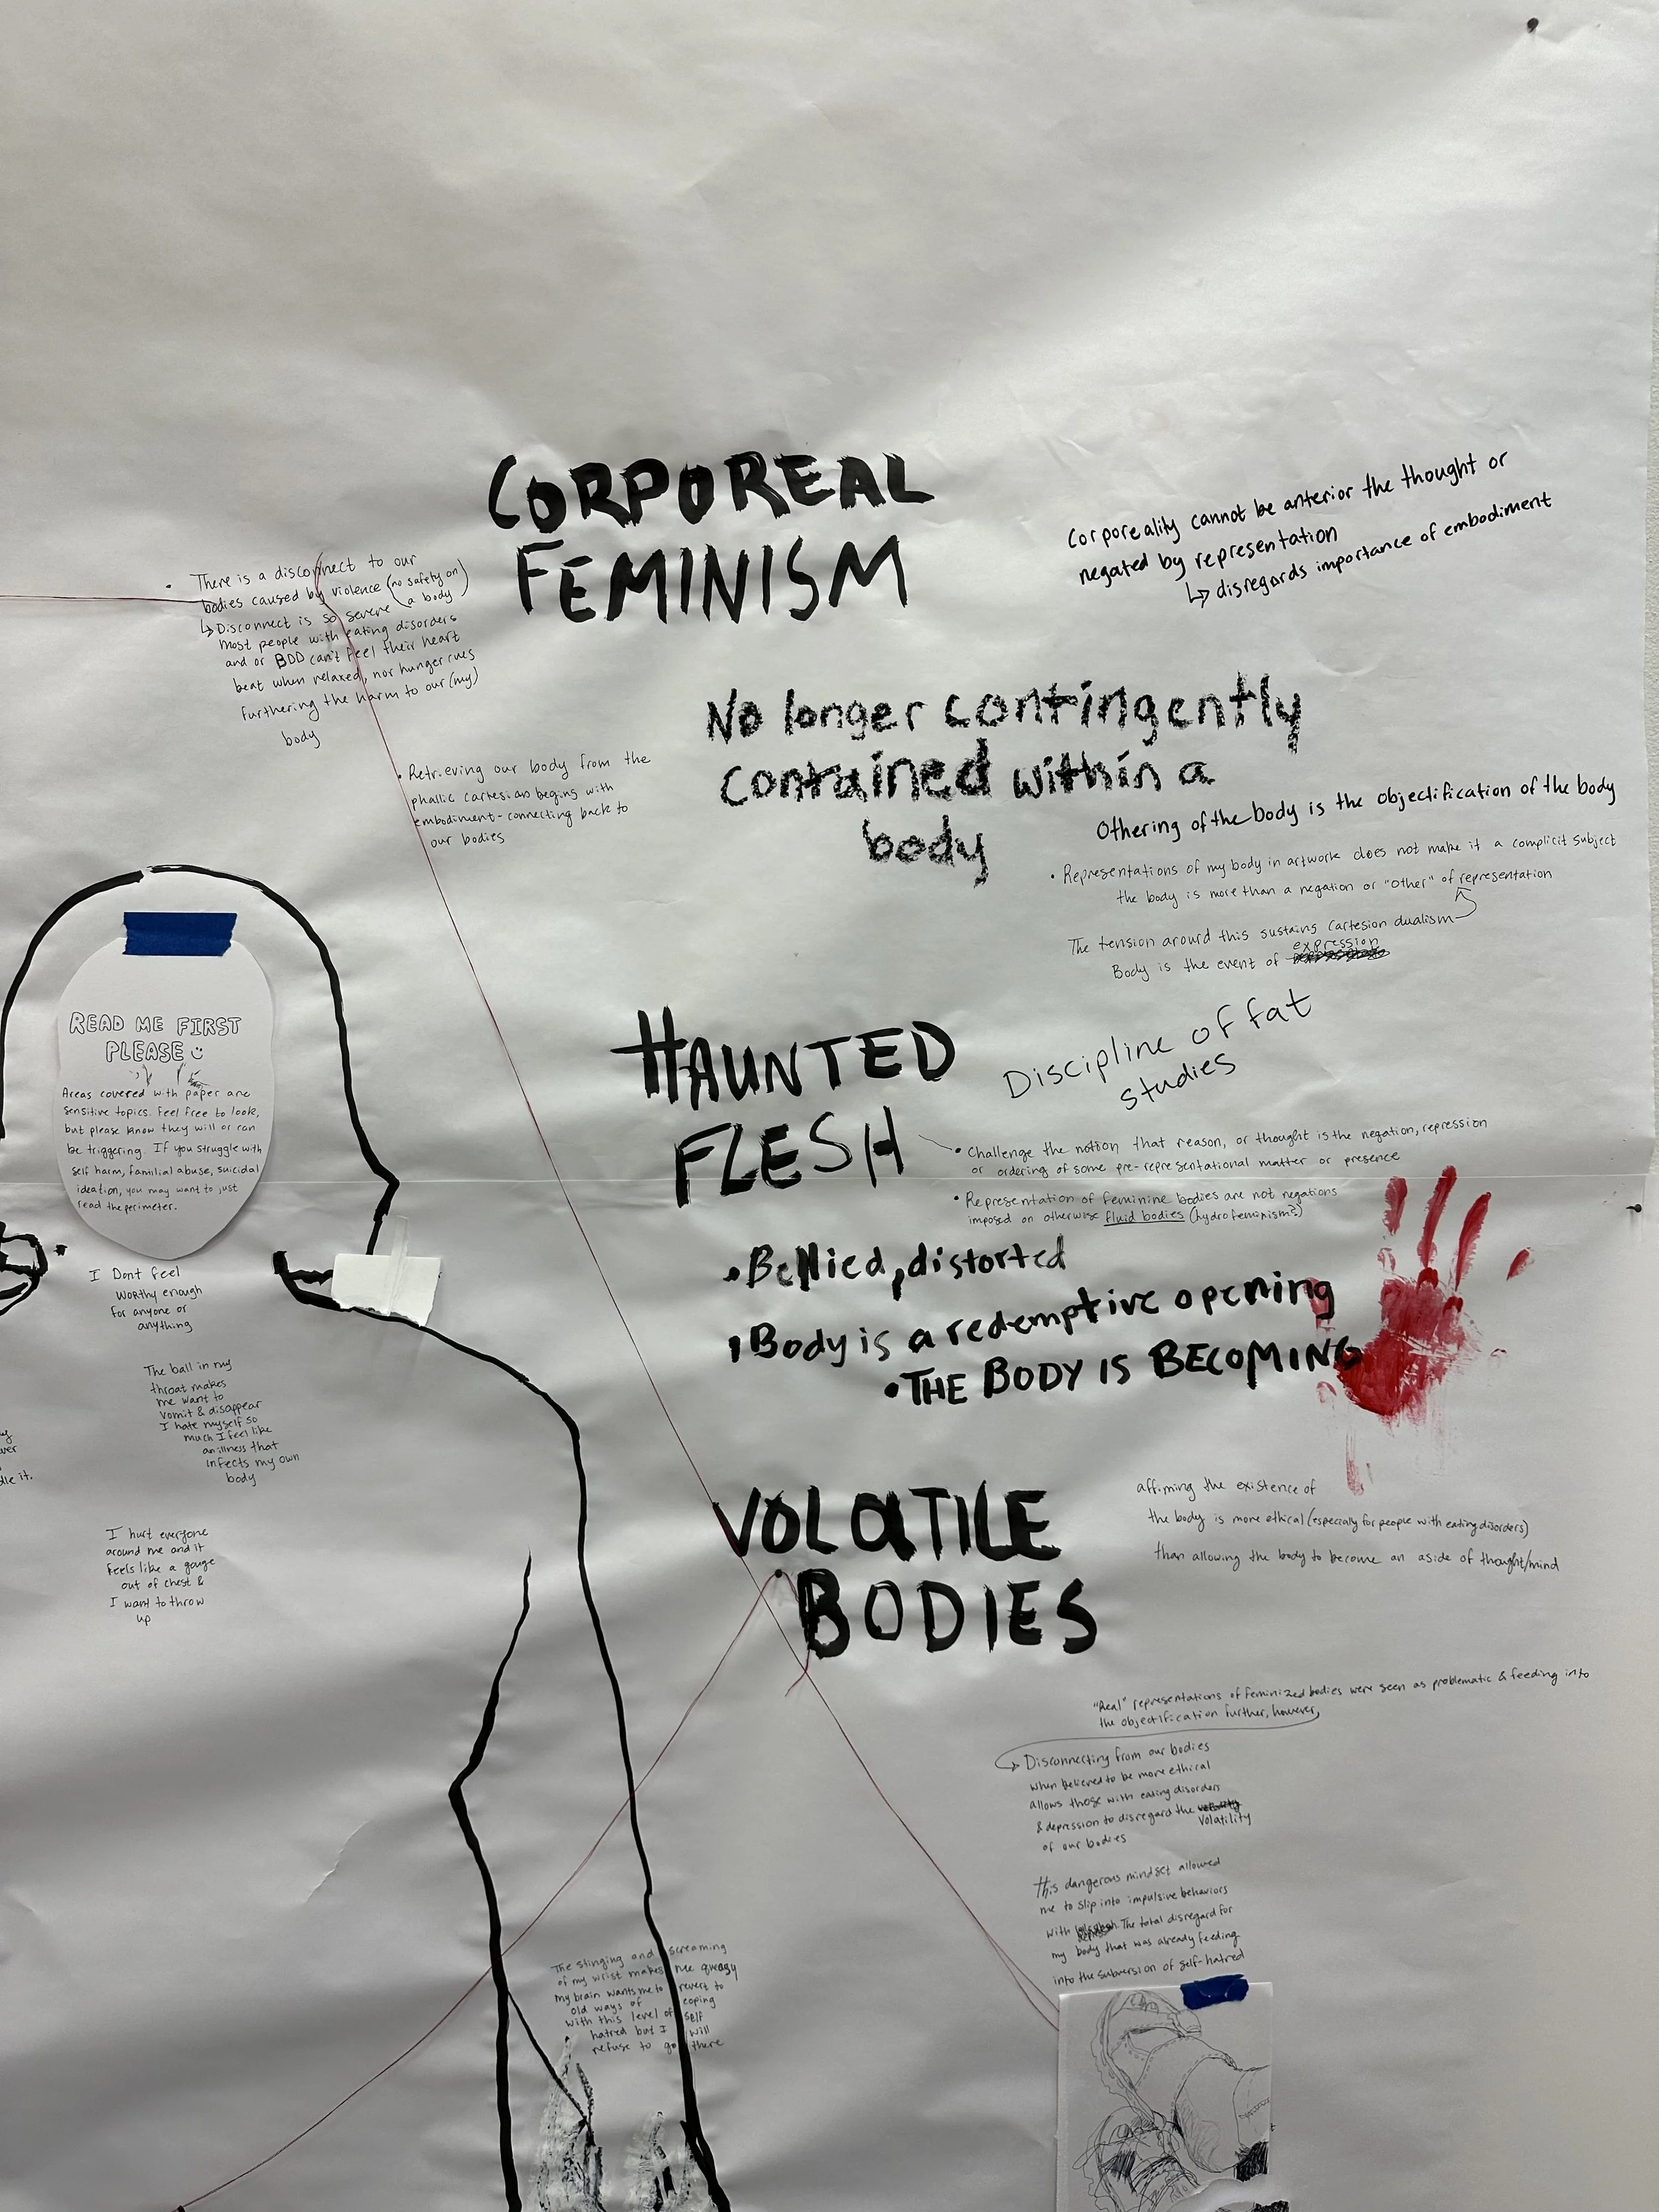 CORPOREAL
FEMINISM
Corporeality cannot be anterior the thought or
negated by representation
↳ disregards importance of embodiment
• There is a disconnect to our
bodies caused by violence (no safety on
a body)
↳ Disconnect is so severe
most people with eating disorders
and or BDD can't feel their heart
beat when relaxed, nor hunger cues
furthering the harm to our (my)
body
• Retrieving our body from the
phallic cartesian begins with
embodiment-connecting back to
our bodies
No longer contingently
contained within a
body
Othering of the body is the objectification of the body
• Representations of my body in artwork does not make it a complicit subject
the body is more than a negation or "other" of representation
The tension around this sustains cartesion dualism
expression
Body is the event of
READ ME FIRST
PLEASE
Areas covered with paper are
sensitive topics. Feel free to look,
but please know they will or can
be triggering. If you struggle with
self harm, familial abuse, suicidal
ideation, you may want to just
read the perimeter.
HAUNTED
FLESH
Discipline of fat
studies
• Challenge the notion that reason, or thought is the negation, repression
or ordering of some pre-representational matter or presence
• Representation of feminine bodies are not negations
imposed on otherwise fluid bodies (hydrofeminism?)
• Bellied, distorted
• Body is a redemptive opening
• THE BODY IS BECOMING
I Dont feel
worthy enough
for anyone or
anything
The ball in my
throat makes
me want to
vomit & disappear
I hate myself so
much I feel like
an illness that
infects my own
body
dle it.
I hurt everyone
around me and it
feels like a gouge
out of chest &
I want to throw
up
VOLATILE
BODIES
affirming the existence of
the body is more ethical (especially for people with eating disorders)
than allowing the body to become an aside of thought/mind
"Real" representations of feminized bodies were seen as problematic & feeding into
the objectification further, however,
↳ Disconnecting from our bodies
when believed to be more ethical
allows those with eating disorders
& depression to disregard the
volatility
of our bodies
This dangerous mindset allowed
me to slip into impulsive behaviors
with The total disregard for
my body that was already feeding
into the subversion of self-hatred
The stinging and screaming
of my wrist makes me queasy
my brain wants me to revert to
old ways of coping
with this level of self
hatred but I will
refuse to go there